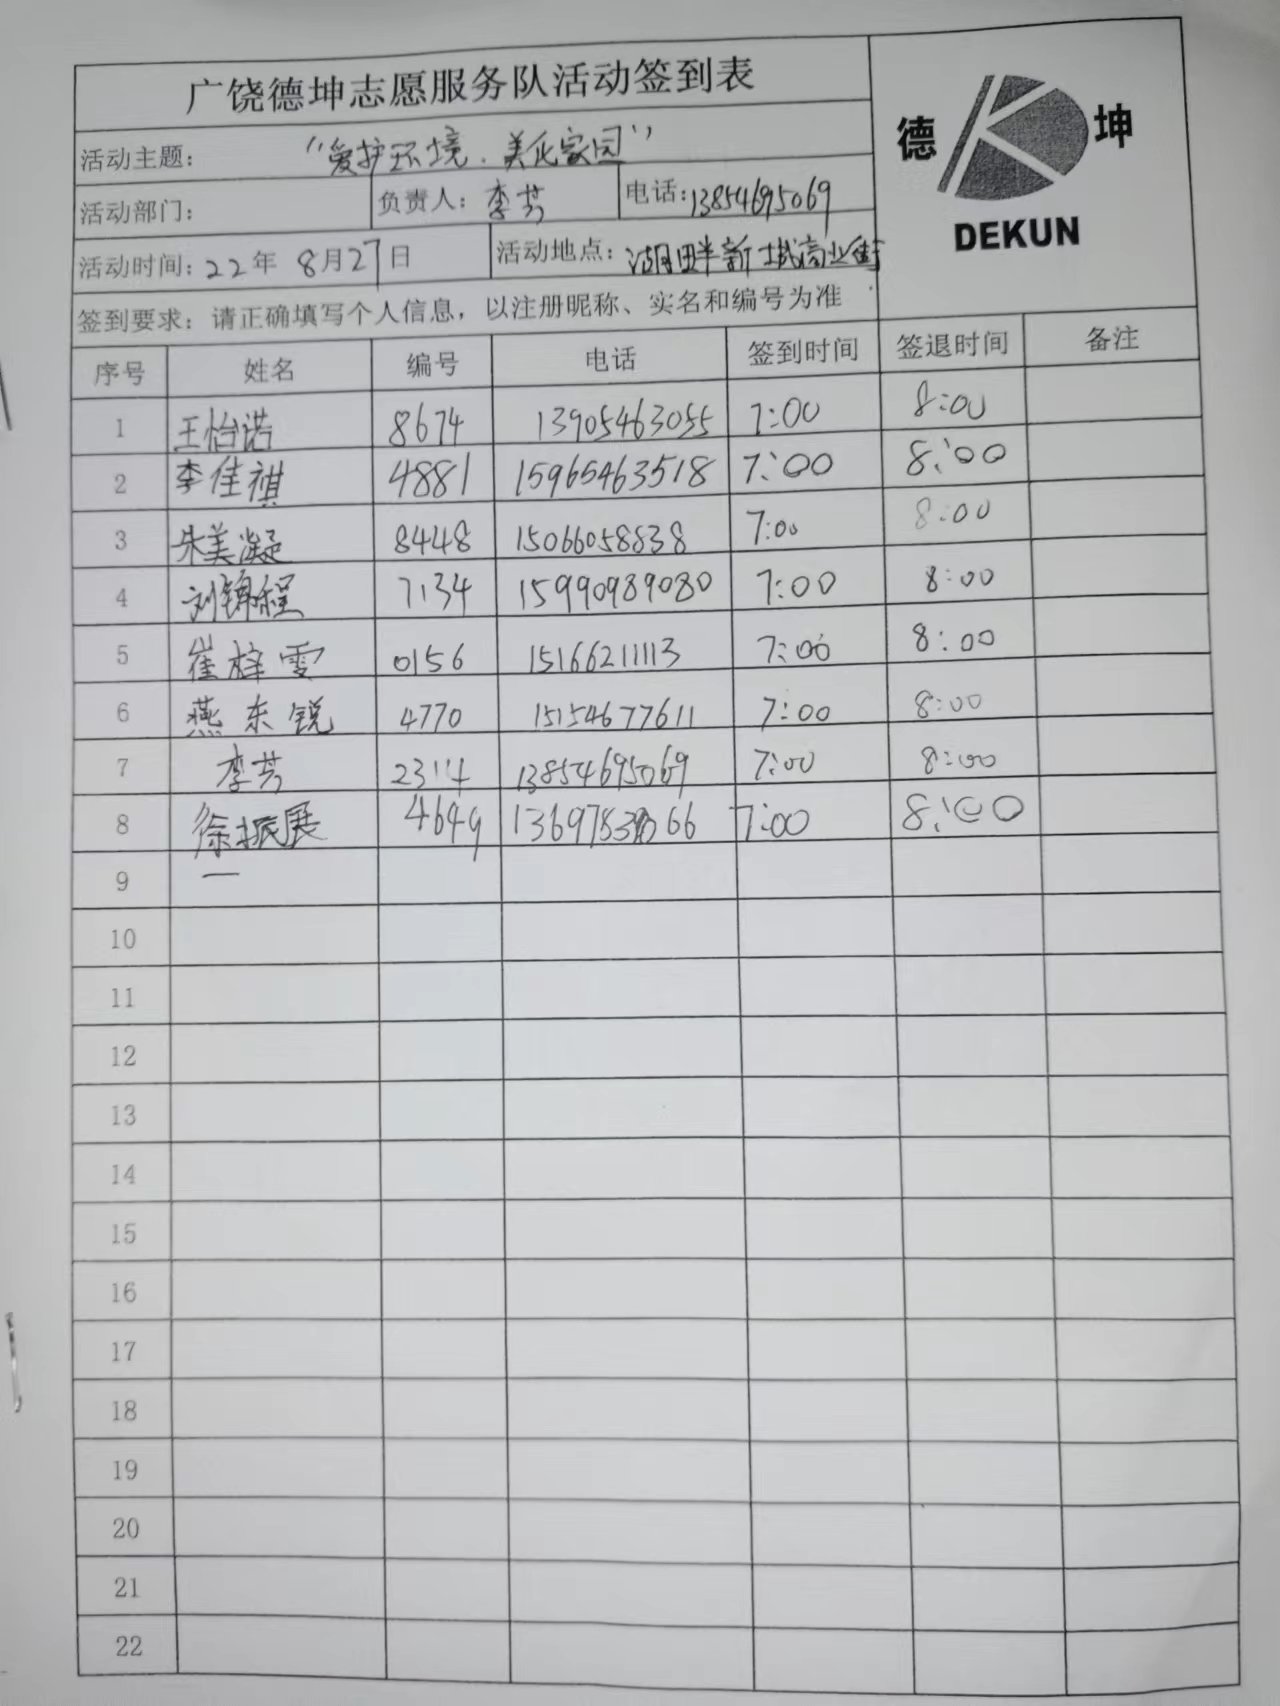 广饶德坤志愿服务队活动签到表
德 坤
DEKUN
活动主题: "爱护环境.美化家园"
活动部门: 负责人: 李芳 电话:13854695069
活动时间: 22年 8月27日 活动地点: 湖畔新城商业街
签到要求: 请正确填写个人信息, 以注册昵称、实名和编号为准
序号 姓名 编号 电话 签到时间 签退时间 备注
1 王怡诺 8674 13905463055 7:00 8:00
2 李佳祺 4881 15965463518 7:00 8:00
3 朱美凝 8448 15066058838 7:00 8:00
4 刘锦程 7134 15990989080 7:00 8:00
5 崔梓雯 0156 15166211113 7:00 8:00
6 燕东锐 4770 15154677611 7:00 8:00
7 李芳 2314 13854695069 7:00 8:00
8 徐振展 4649 7:00 8:00
9
10
11
12
13
14
15
16
17
18
19
20
21
22